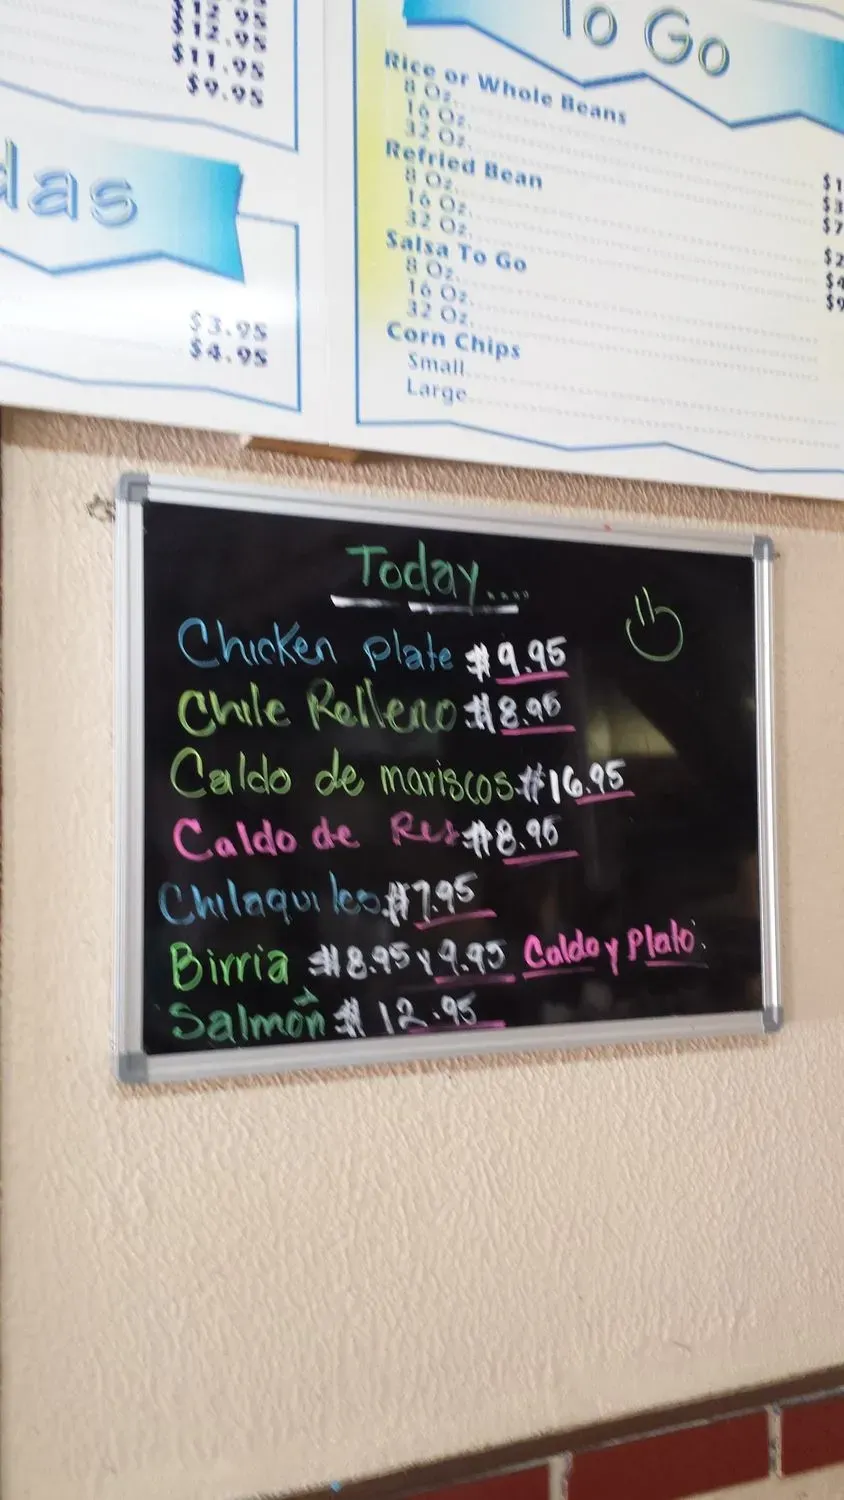 $12.95
$11.95
$9.95
das
$3.95
$4.95
To Go
Rice or Whole Beans
8 Oz.
16 Oz.
32 Oz.
Refried Bean
8 Oz.
16 Oz.
32 Oz.
Salsa To Go
8 Oz.
16 Oz.
32 Oz.
Corn Chips
Small
Large
$1
$3
$7
$2
$4
$9
Today....
Chicken plate $9.95
Chile Relleno $8.95
Caldo de mariscos $16.95
Caldo de Res $8.95
Chilaquiles $7.95
Birria $8.95 y 9.95 Caldo y Plato.
Salmón $12.95